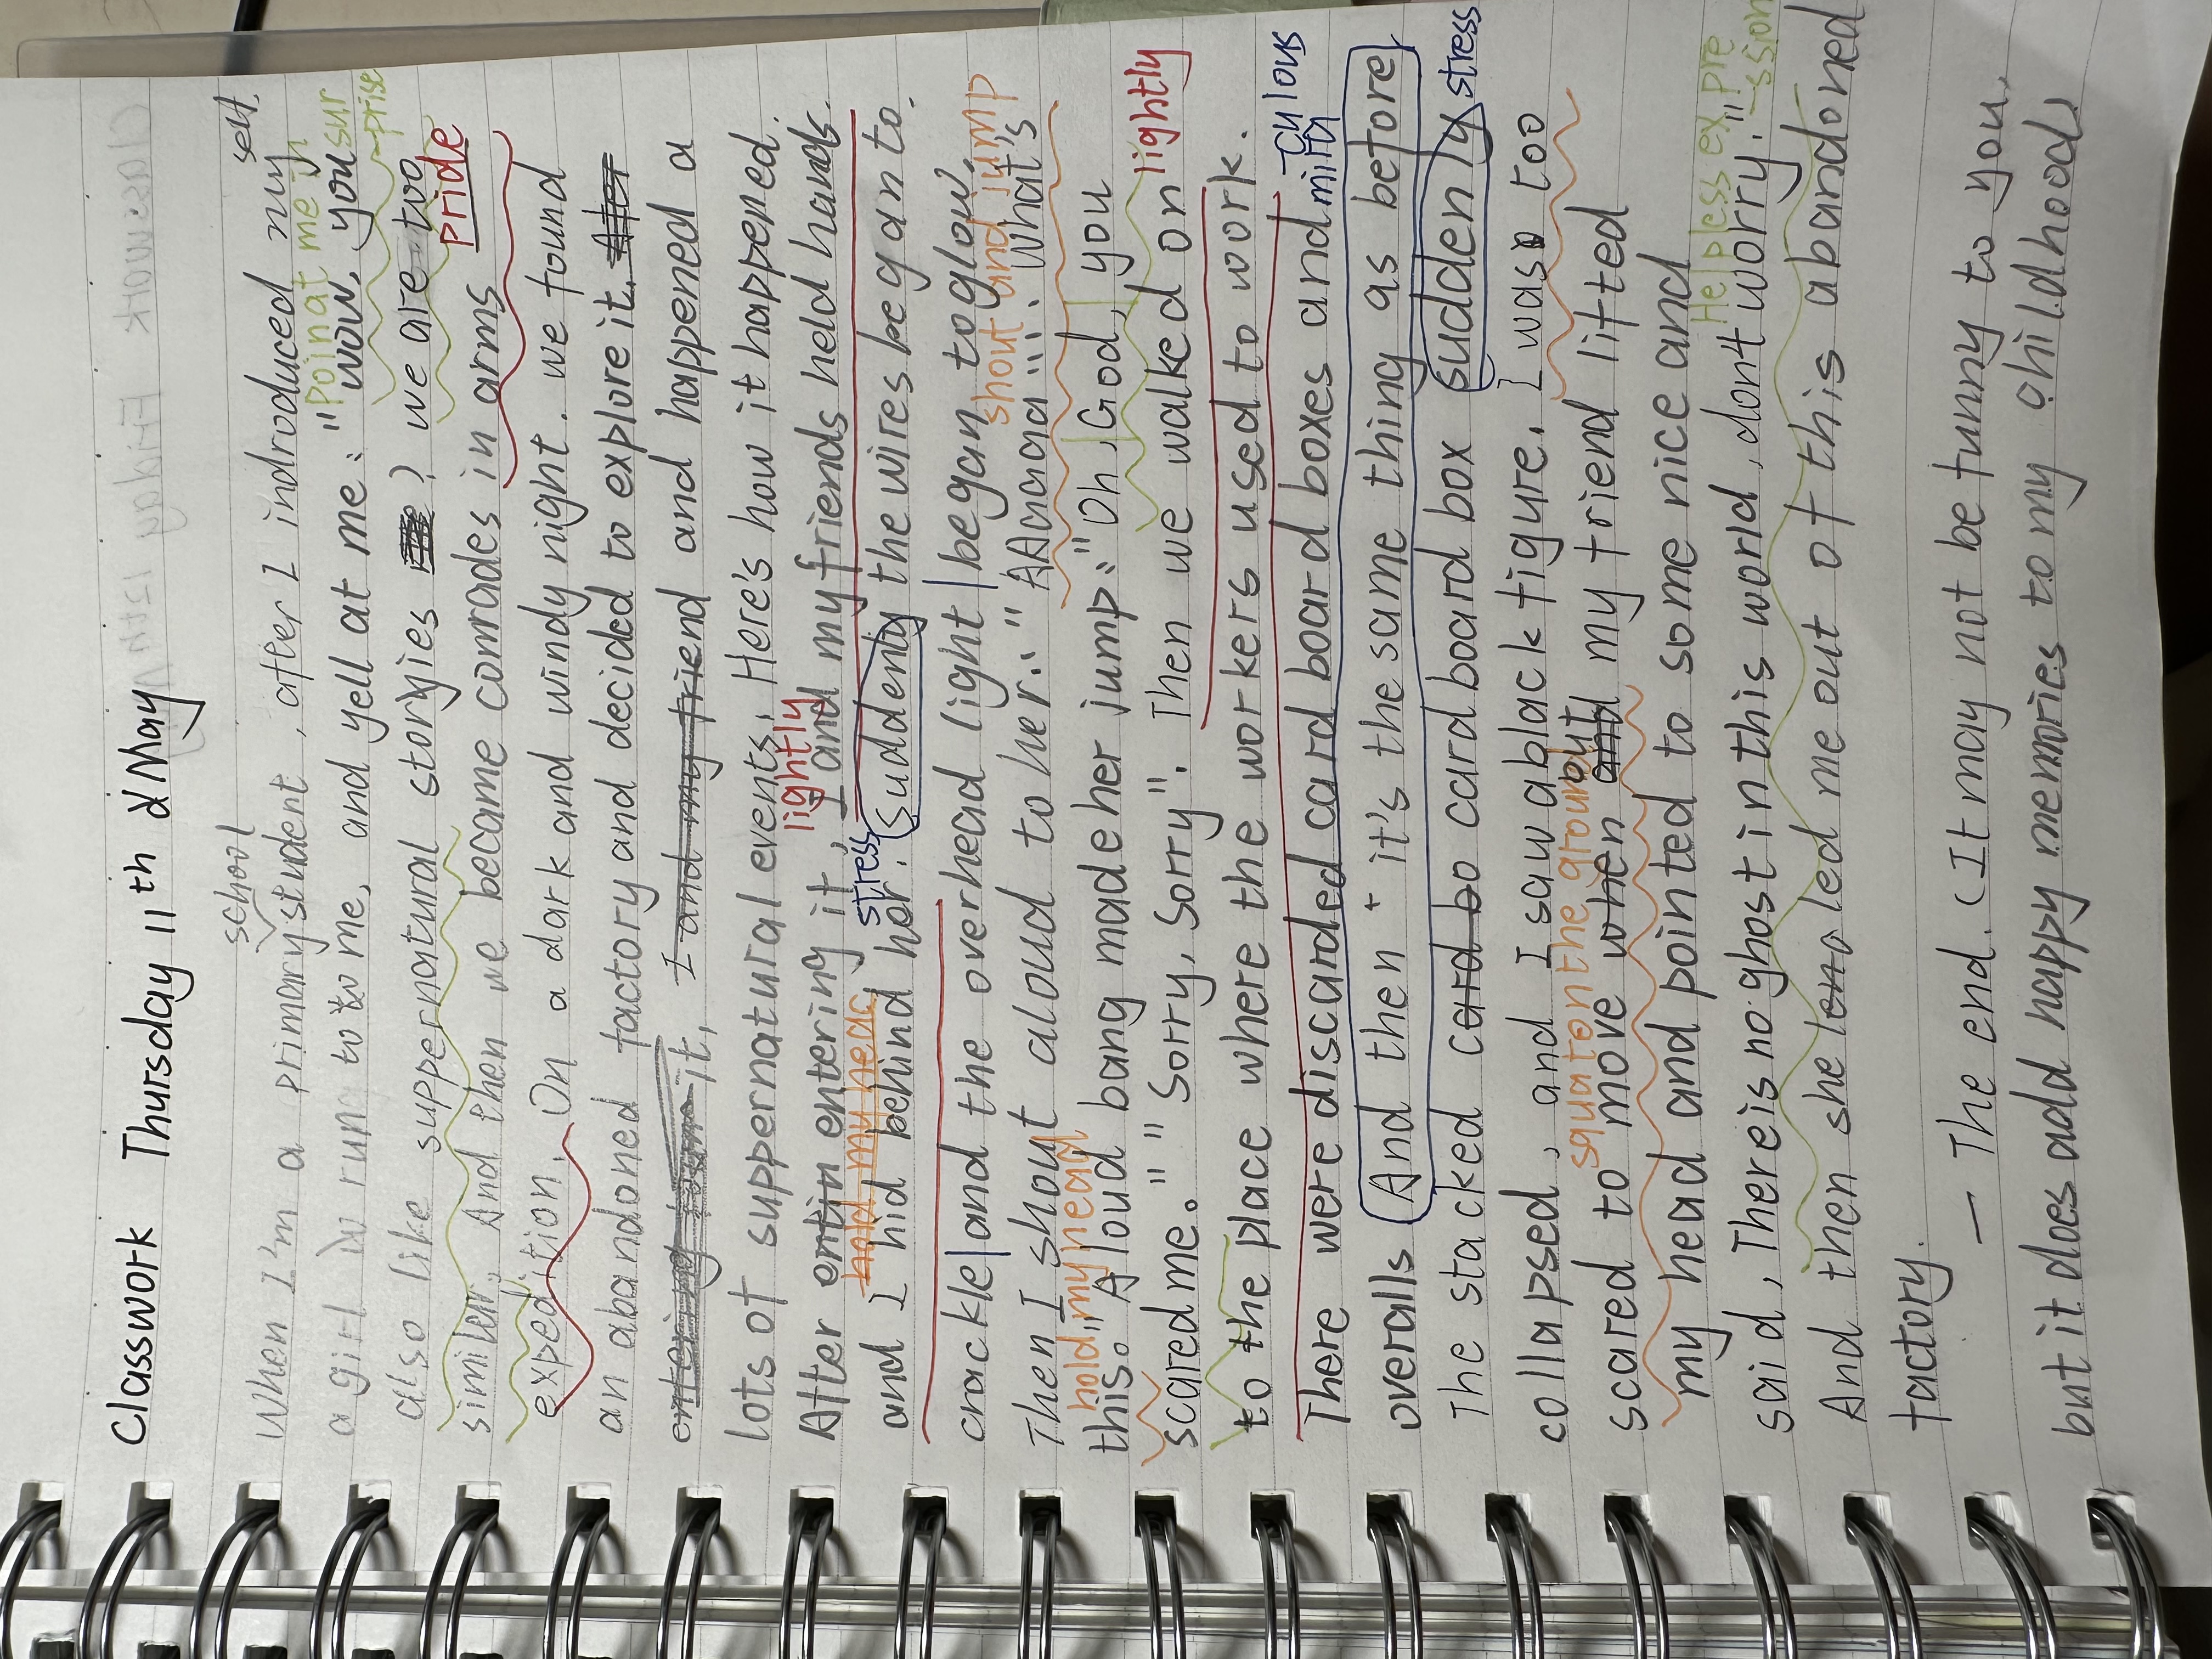 Classwork Thursday 11th May
school
When I'm a primary student, after I indroduced my self.
Point at me sur-prise
a girl run to me, and yell at me: "wow, you
also like suppernatural stories ? we are two
pride
similer. And then we became comrades in arms
expedition. On a dark and windy night. we found
an abandoned factory and decided to explore it. After
it, I and my friend and happened a
lots of suppernatural events, Here's how it happened.
lightly
After entin entering it, I and my friends held hands.
hold my head stress
and I hid behind her. Suddenly the wires began to
crackle|and the overhead light|began to glow.
shout and jump
Then I shout aloud to her: "AAaaaa!!!. What's
hold my head
this." A loud bang made her jump: "Oh, God, you
scared me." "Sorry, Sorry". Then we walked on
lightly
to the place where the workers used to work.
There were discarded card board boxes and
miraculous
overalls And then it's the same thing as before
The stacked card bo card board box suddenly
stress
collapsed, and I saw a black figure. I was too
squat on the ground
scared to move when and but my friend lifted
my head and pointed to some nice and
Helpless expre-ssion
said, There is no ghost in this world, dont worry."
And then she led me out of this abandoned
factory.
— The end. (It may not be funny to you,
but it does add happy memories to my childhood)